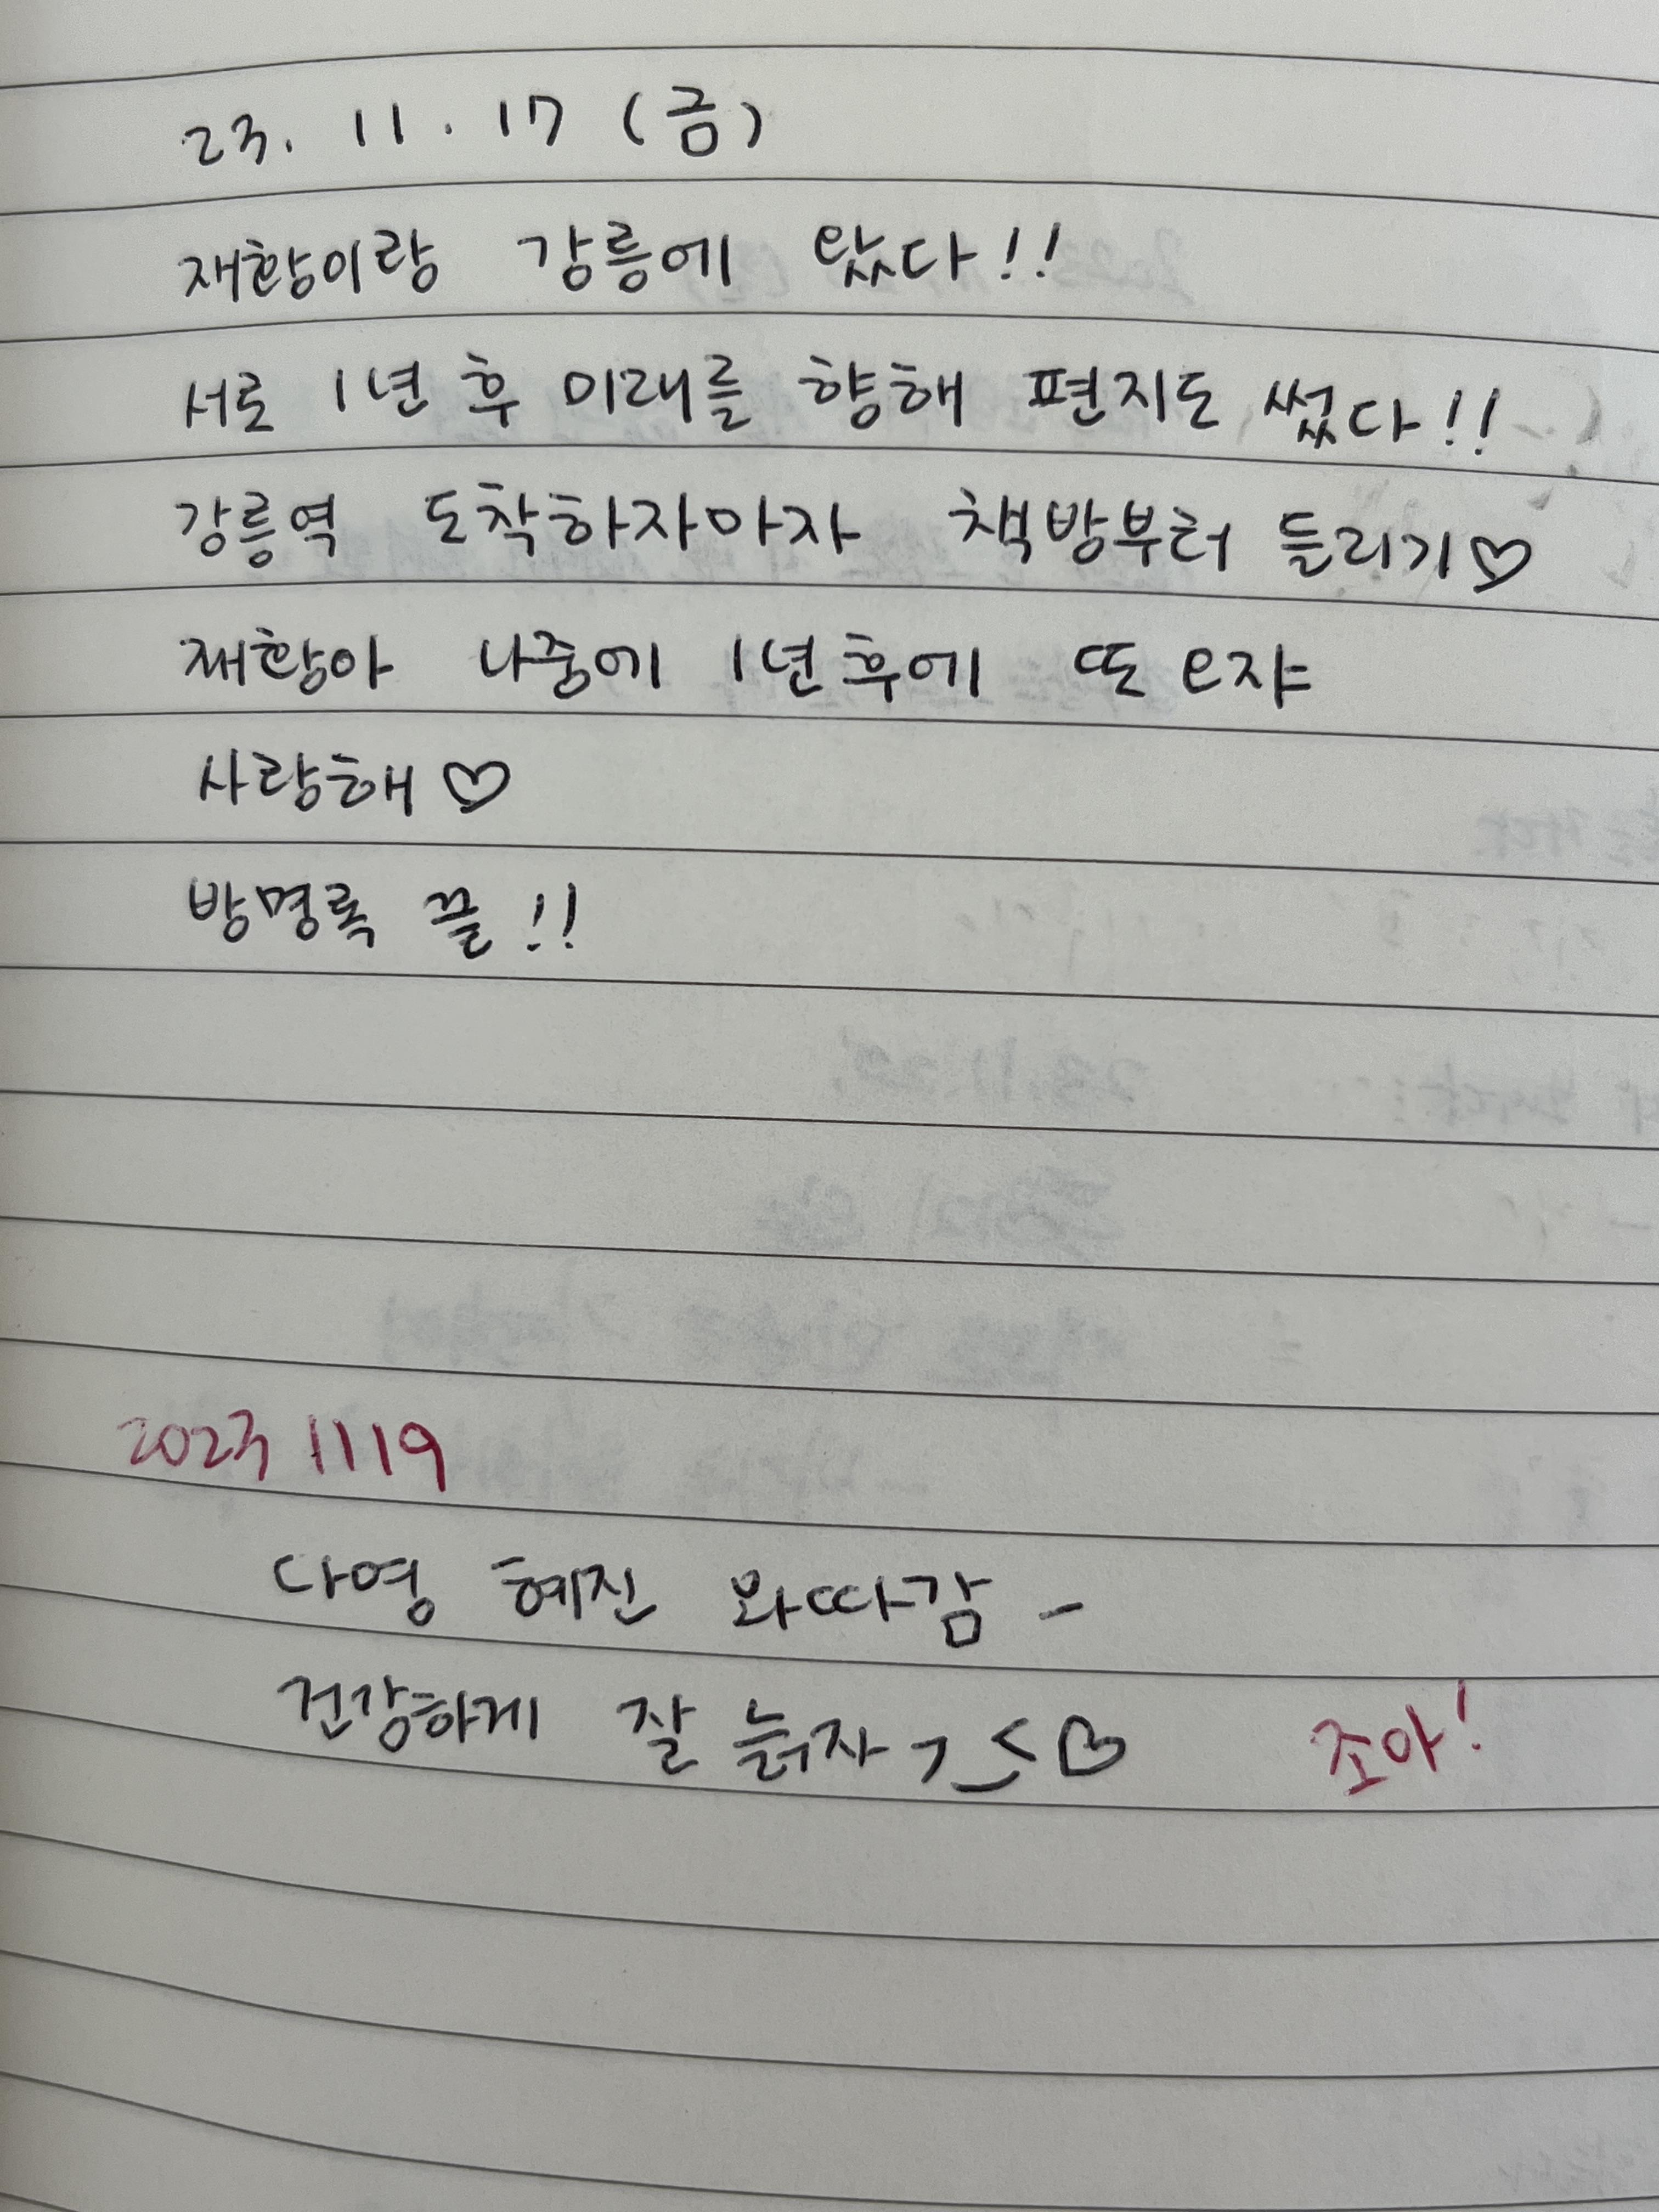 23. 11. 17 (금)
재항이랑 강릉에 왔다!!
서로 1년 후 미래를 향해 편지도 썼다!!
강릉역 도착하자마자 책방부터 들리기♡
재항아 나중에 1년후에 또 오쟈
사랑해♡
방명록 끝!!
2023 1119
다영 혜진 와따감 -
건강하게 잘 늙자 >_<♡ 조아!